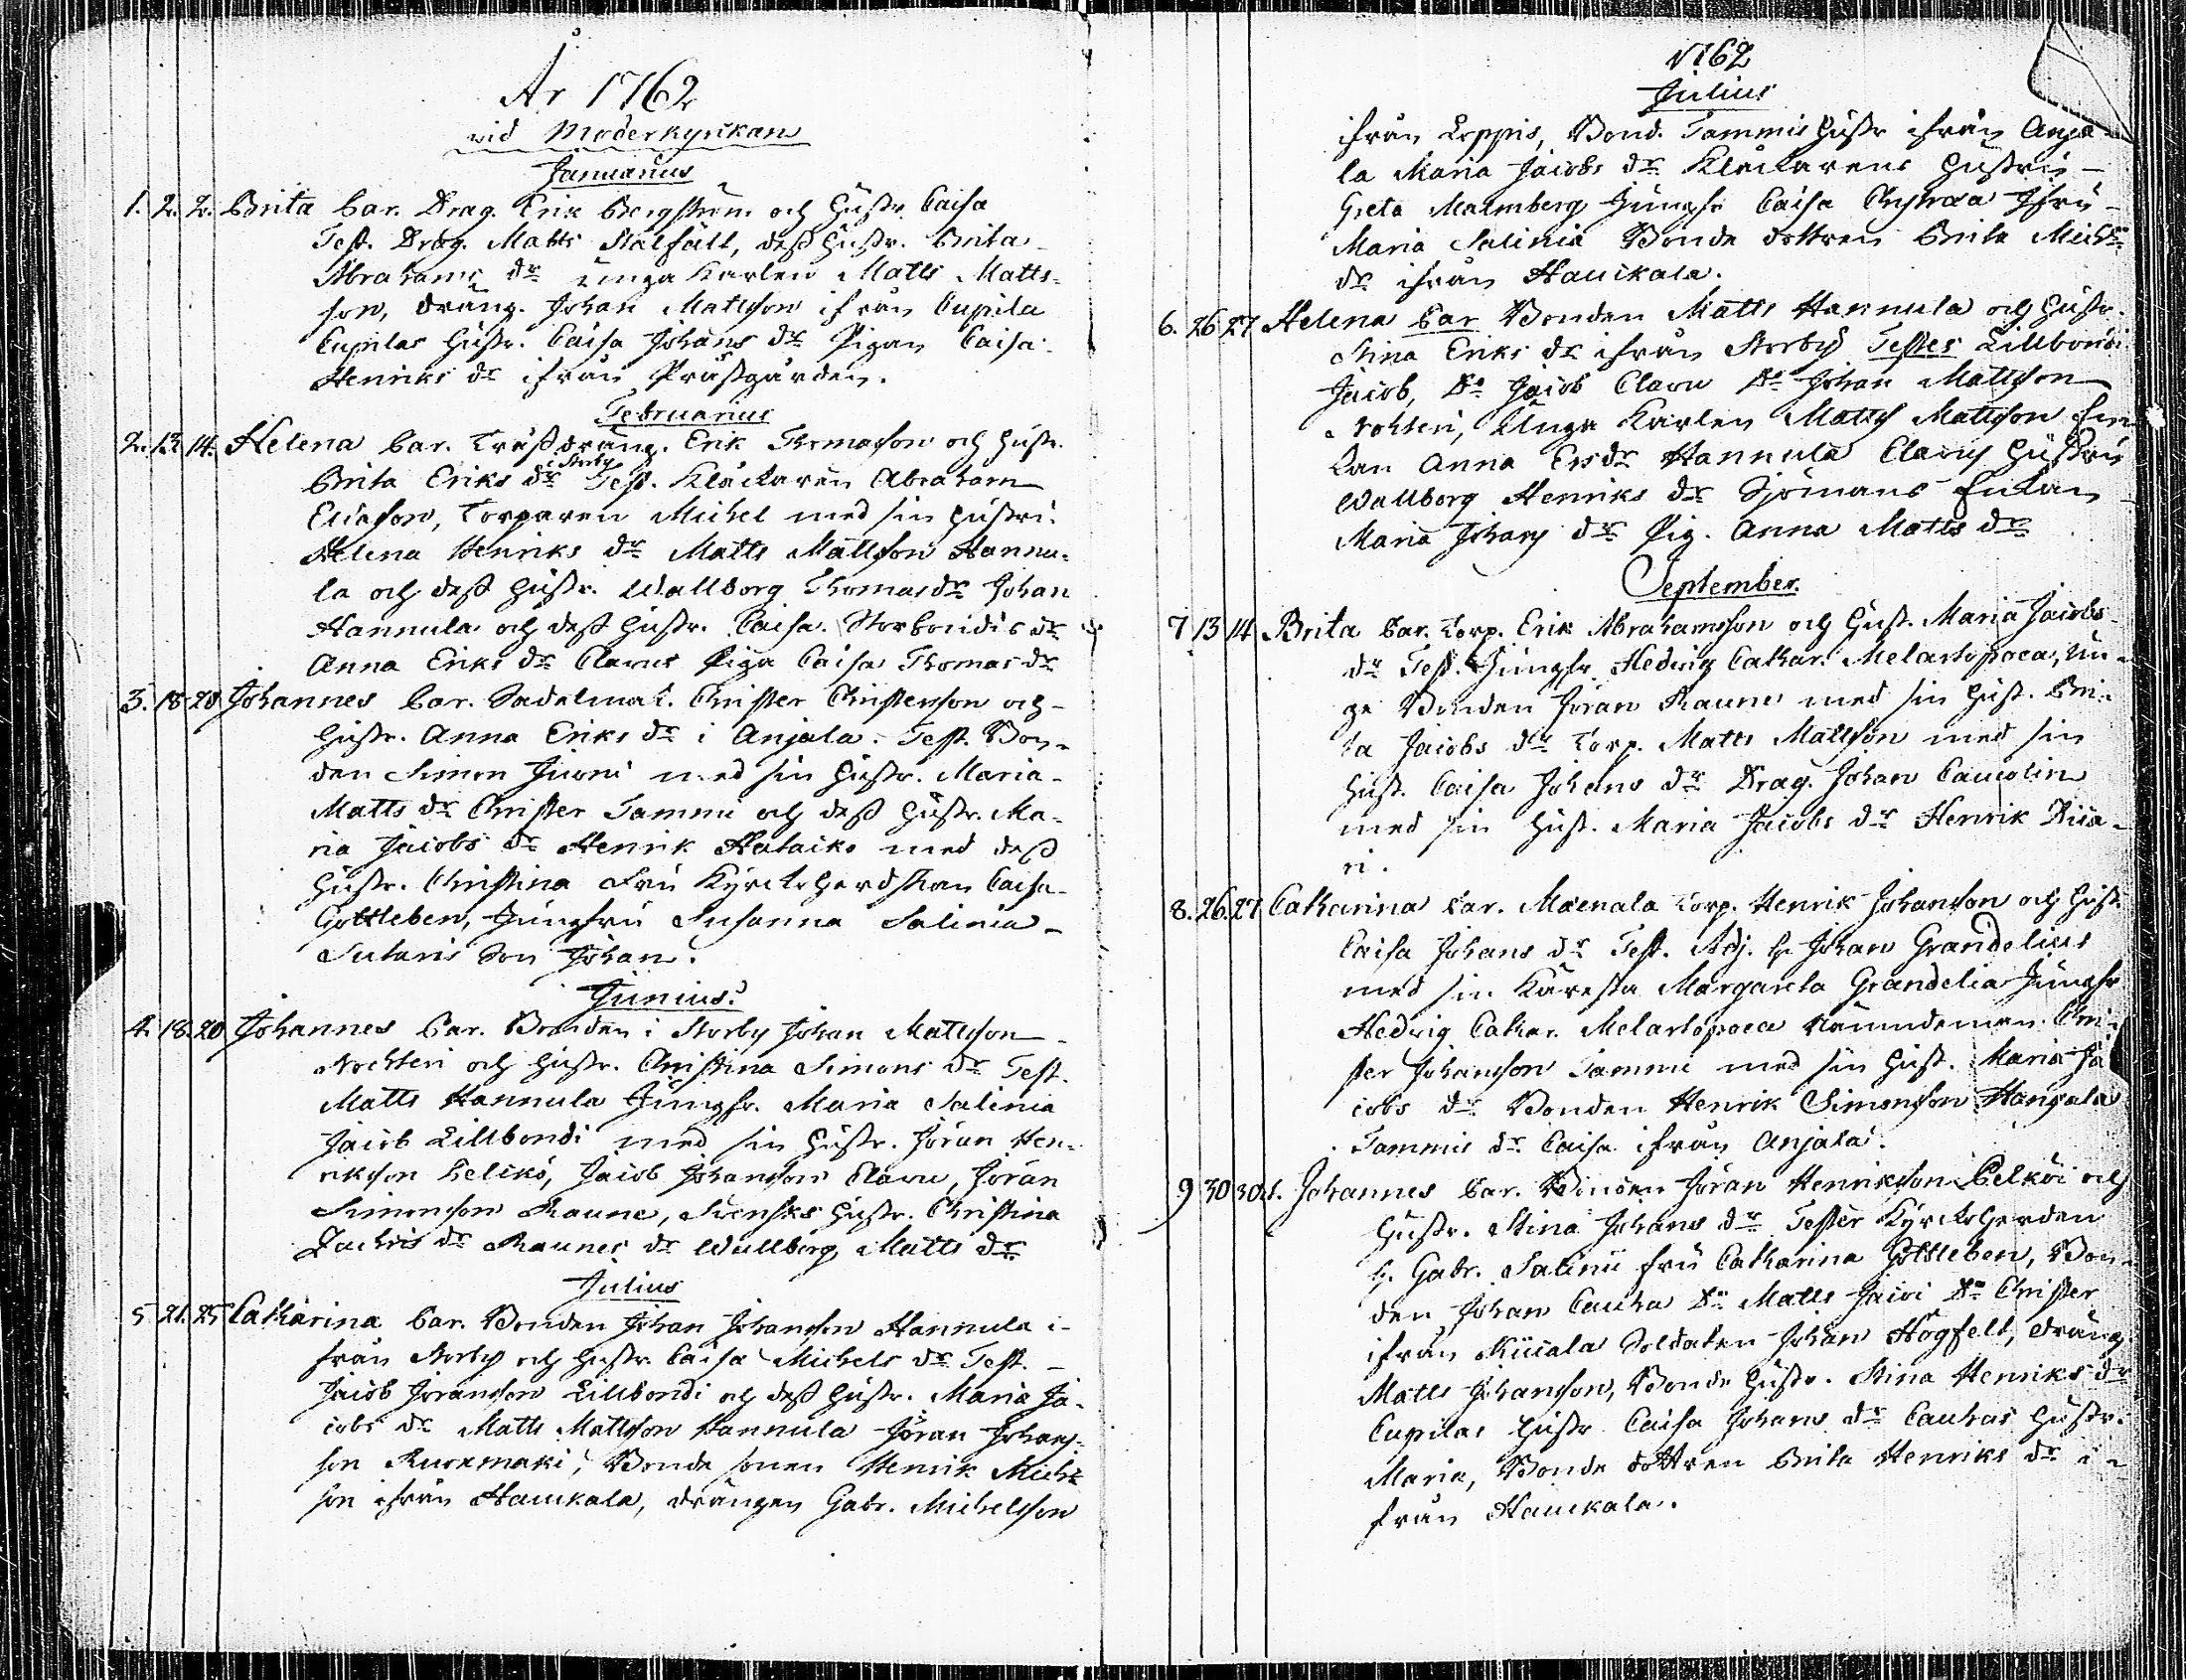 År 1762
vid Moderkyrkan
Januarius
1. 2. 2. Brita Par. Drag. Erik Bergström och Hustr. Caisa
Test. Drag. Matts Stålfält, dess Hustr. Brita
Abrahams dr unga Karlen Matts Matts-
son, dräng. Johan Mattsson ifrån Cupila
Cupilas Hustr. Caisa Johans dr Pigan Caisa
Henriks dr ifrån Prästgården.
Februarius
2. 13. 14. Helena Par. dräng. Erik Thomasson och Hustr.
i Storby
Brita Eriks dr Test. Klåckaren Abraham
Eliasson, Torparen Michel med sin Hustru
Helena Henriks dr Matts Mattsson Hannu-
la och dess Hustr. Wallborg Thomas dr Johan
Hannula och dess Hustr. Caisa. Storbondis dr
Anna Eriks dr Clavus Piga Caisa Thomas dr
3. 18 20 Johannes Par. Sadelmak. Christer Christersson och
Hustr. Anna Eriks dr i Anjala. Test. Bon-
den Simon Juoni med sin Hustr. Maria
Matts dr Christer Tammi och dess Hustr. Ma-
ria Jacobs dr Henrik Hataiko med dess
Hustr. Christina Fru Kyrckoherdskan Caisa
Gottleben, Jungfru Susanna Salinia
Sutaris Son Johan.
Junius.
4. 18. 20 Johannes Par. Bonden i Storby Johan Mattsson
Nochteri och Hustr. Christina Simons dr Test.
Matts Hannula Jungfr. Maria Salinia
Jacob Lillbondi med sin Hustr. Jöran Hen-
riksson Pelkö, Jacob Johansson Clavu, Jöran
Simonsson Raune, Svensks Hustr. Christina
Zachris dr Raunes dr Wallborg Matts dr
Julius
5 21. 25 Catharina Par. Bonden Johan Johansson Hannula i-
från Storby och Hustr. Caisa Michels dr Test.
Jacob Jöransson Lillbondi och dess Hustr. Maria Ja-
cobs dr Matts Mattsson Hannula Jöran Johans-
son Ruokmaki, Bonde sonen Henrik Michs-
son ifrån Haukala, drängen Gabr. Michelsson
1762
Julius
ifrån Loppis, Bond. Tammis Hustr ifrån Anja-
la Maria Jacobs dr Klåckarens Hustru
Greta Malmberg Jungfr Caisa Jfru
Maria Salinia Bonde dottren Brita Michs
dr ifrån Haukala.
6. 26 27 Helena Par Bonden Matts Hannula och Hustr.
Stina Eriks dr ifrån Storby Testes Lillbondi
Jacob, Do Jacob Clavu Do Johan Mattsson
Nohteri, Unga Karlen Matts Mattsson En-
kan Anna Ersdr Hannula Clavus Hustru
Wallborg Henriks dr Sjömans Enkan
Maria Johans dr Pig. Anna Matts dr
September.
7 13 14 Brita Par. Torp. Erik Abrahamsson och Hust. Maria Jacobs
dr Test. Jungfr. Hedvig Cathar. Melartopoea, Un-
ge Bonden Jöran Raune med sin Hust. Bri-
ta Jacobs dr Torp. Matts Mattsson med sin
Hust. Caisa Johans dr Drag. Johan Caucolin
med sin Hust. Maria Jacobs dr Henrik Kiia-
ri.
8. 26. 27 Catharina Par. Maenala Torp. Henrik Johansson och Hust.
Caisa Johans dr Test. Adj. H. Johan Grandelius
med sin Käresta Margareta Grandelia Jungfr
Hedvig Cathar. Melartopoea Nämndeman Chri-
ster Johansson Tammi med sin Hust. Maria Ja-
cobs dr Bonden Henrik Simonsson Hangala
Tammis dr Caisa ifrån Anjala.
9 30 30 Johannes Par. Bonden Jöran Henriksson Pelköi och
Hustr. Stina Johans dr Tester Kyrckoherden
H. Gabr. Salinii fru Catharina Gottleben, Bon-
den Johan Cauha Do Matts Jaivi Do Christer
ifrån Kiiala Soldaten Johan Högfelt, dräng
Matts Johansson, Bonde Hustr. Stina Henriks dr
Cupilas Hustr Caisa Johans dr Cauhas Hustr.
Maria, Bonde dottren Brita Henriks dr i-
från Haukala.